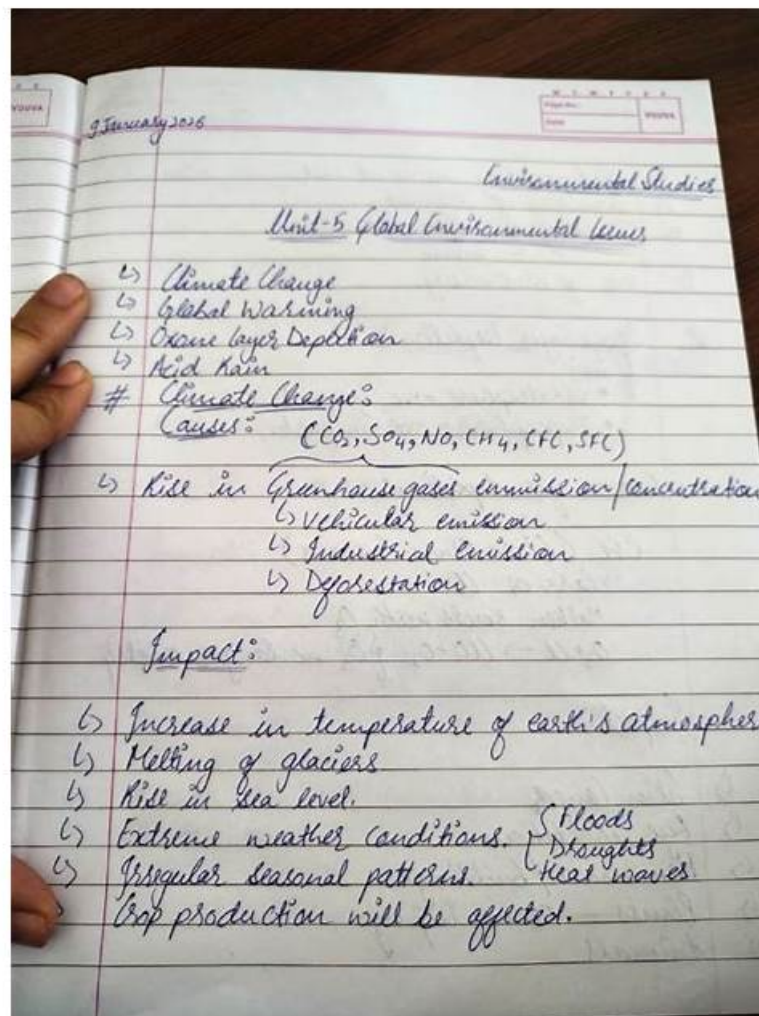 9 January 2026
M T W T F S S
Page No.:
Date:
YOUVA
YOUVA
Environmental Studies
Unit-5 Global Environmental Issues
↳ Climate Change
↳ Global Warming
↳ Ozone layer Depection
↳ Acid Rain
# Climate Change:
Causes: (CO2, SO4, NO, CH4, CFC, SFC)
↳ Rise in Greenhouse gases emmission/concentration
↳ Vehicular emission
↳ Industrial emission
↳ Deforestation
Impact:
↳ Increase in temperature of earth's atmospher
↳ Melting of glaciers
↳ Rise in sea level.
↳ Extreme weather conditions. { Floods
Droughts
Heat waves
↳ Irregular seasonal patterns.
↳ Crop production will be affected.